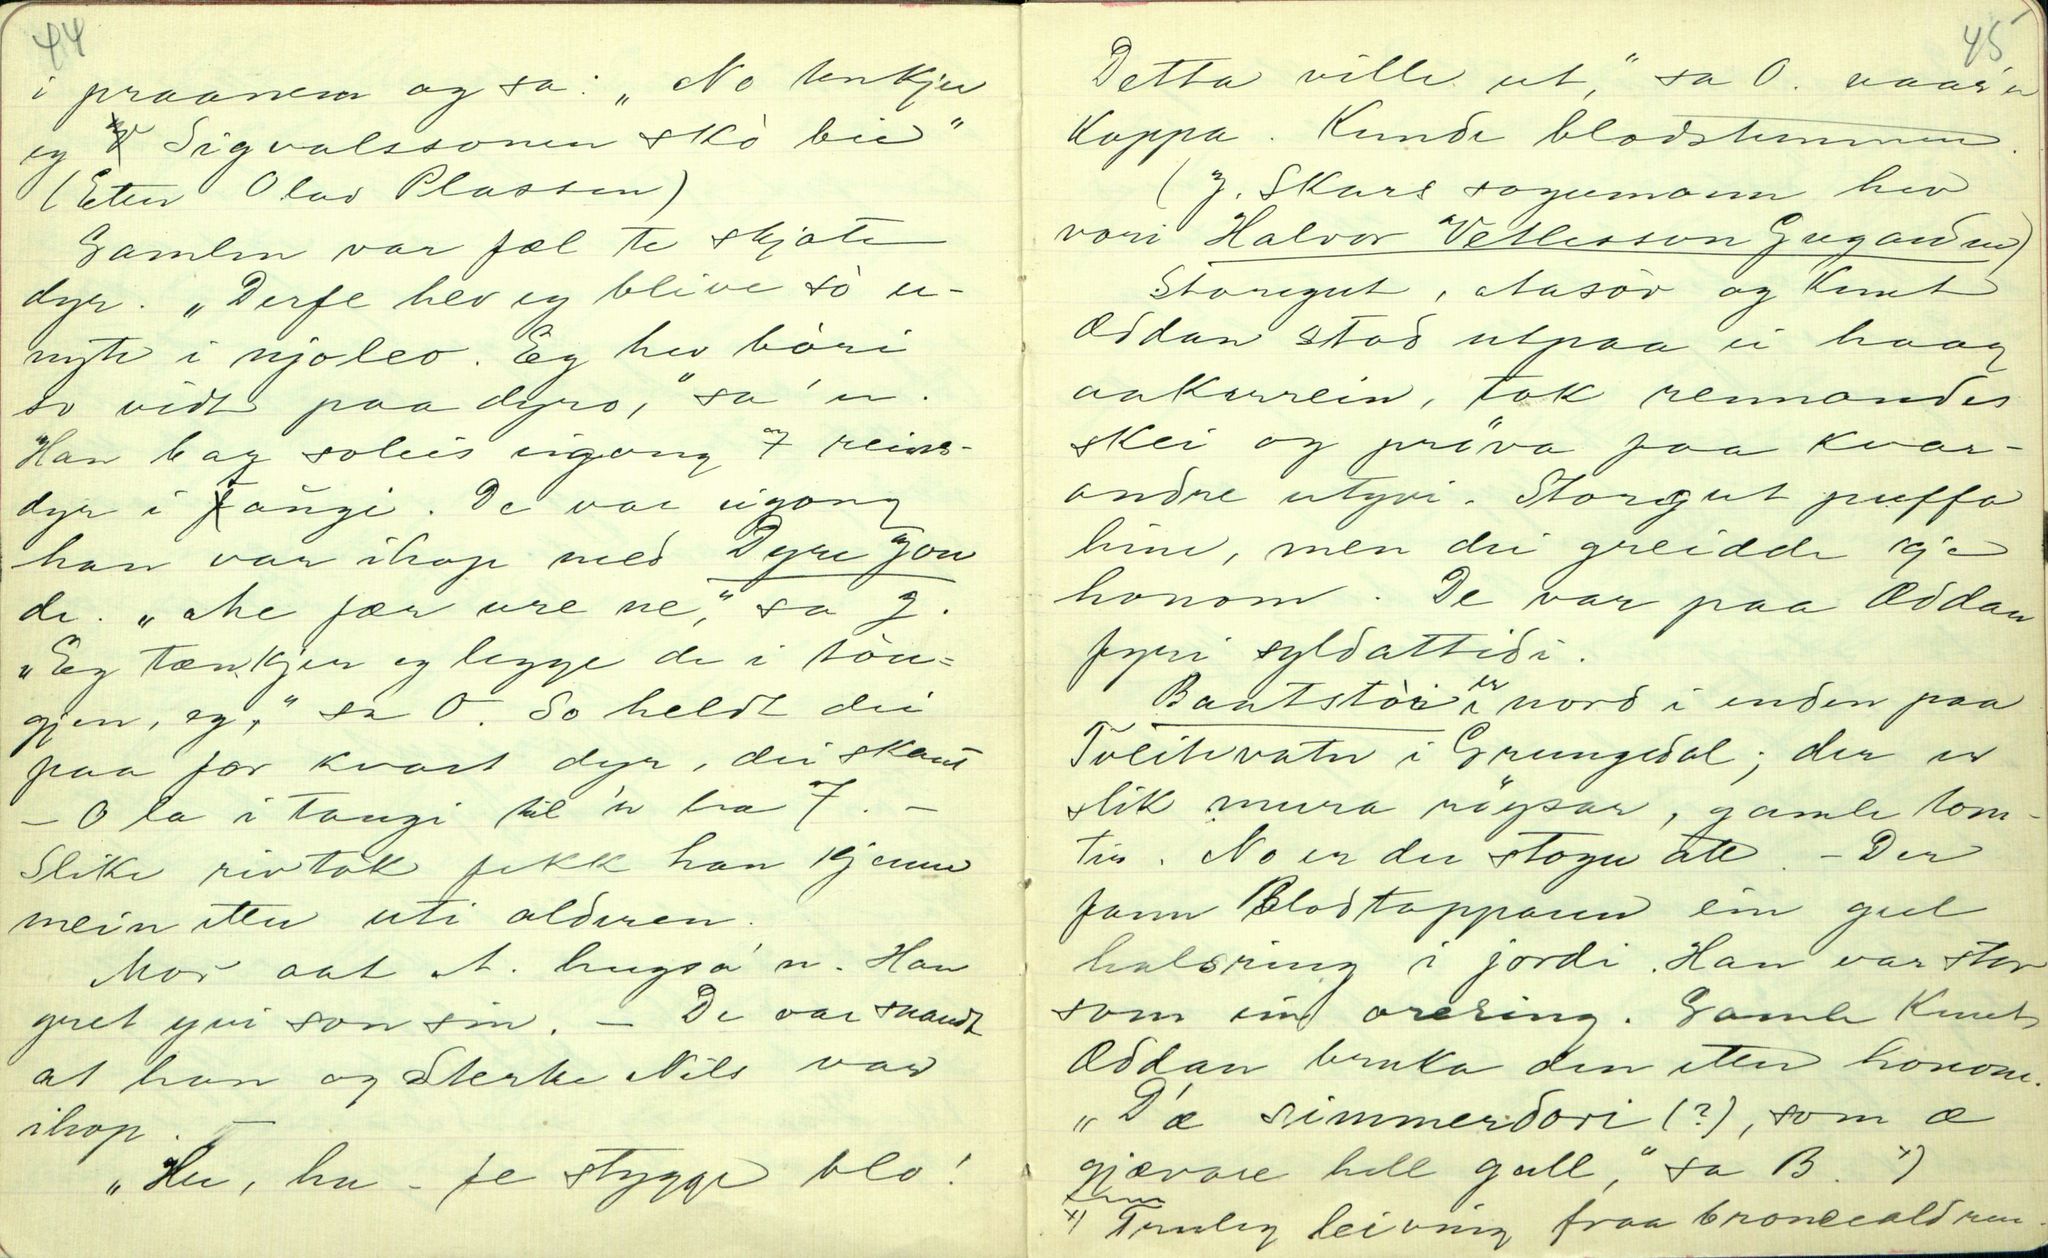 44
i praanem og sa: „No tenkjer
eg Sigvalssonen skò bie"
(Etter Olav Plassen)
Gamlen var fæl te skjote
dyr. „Derfe hev eg blive sò u-
nyte i njoleo. Eg hev bòri
so vidt paa dyro," sa 'n.
Han bag soleis eigong 7 reins-
dyr i taugi. De var eigong
han var ihop med Dyre Jon
de. „Me fær ure ne," sa J.
„Eg tænkjer eg legge de i tòu-
gjen, eg," sa O. So heldt dei
paa for kvart dyr, dei skaut
– O la i taugi til 'n ha 7. –
Slike rivtok fekk han kjenne
mein etter uti alderen.
Mor aat A. hugsa 'n. Han
gret yvi son sin. – De var saandt
at han og Sterke Nils var
ihop. –
„Hu, hu – fe stygge blo!
45
Detta ville ut," sa O. vaar 'n
Koppa. Kunde blodstemmen.
(J. Skars sogumann hev
vori Halvor Vetlesson Gugarden)
Storegut, Aasòv og Knut
Øddan stod utpaa ei haag
aakerrein, tok rennandes
skei og pröva faa kvar-
andre utyvi. Storegut puffa
hine, men dei greidde kje
honom. De var paa Øddan
fyri syldattidi.
Bautstòi er nord i enden paa
Tveitevatn i Grungedal; der er
slik mura röysar, gamle tom-
ter. No er der stogu att. – Der
fann Blodtapparen ein gul
halsring i jordi. Han var stor
som ein orering. Gamle Knut
Øddan bruka den etter honom.
„D'æ simmerdori (?), som æ
gjævare hell gull," sa B. x)
x) Truleg leivning fraa bronsealdren.